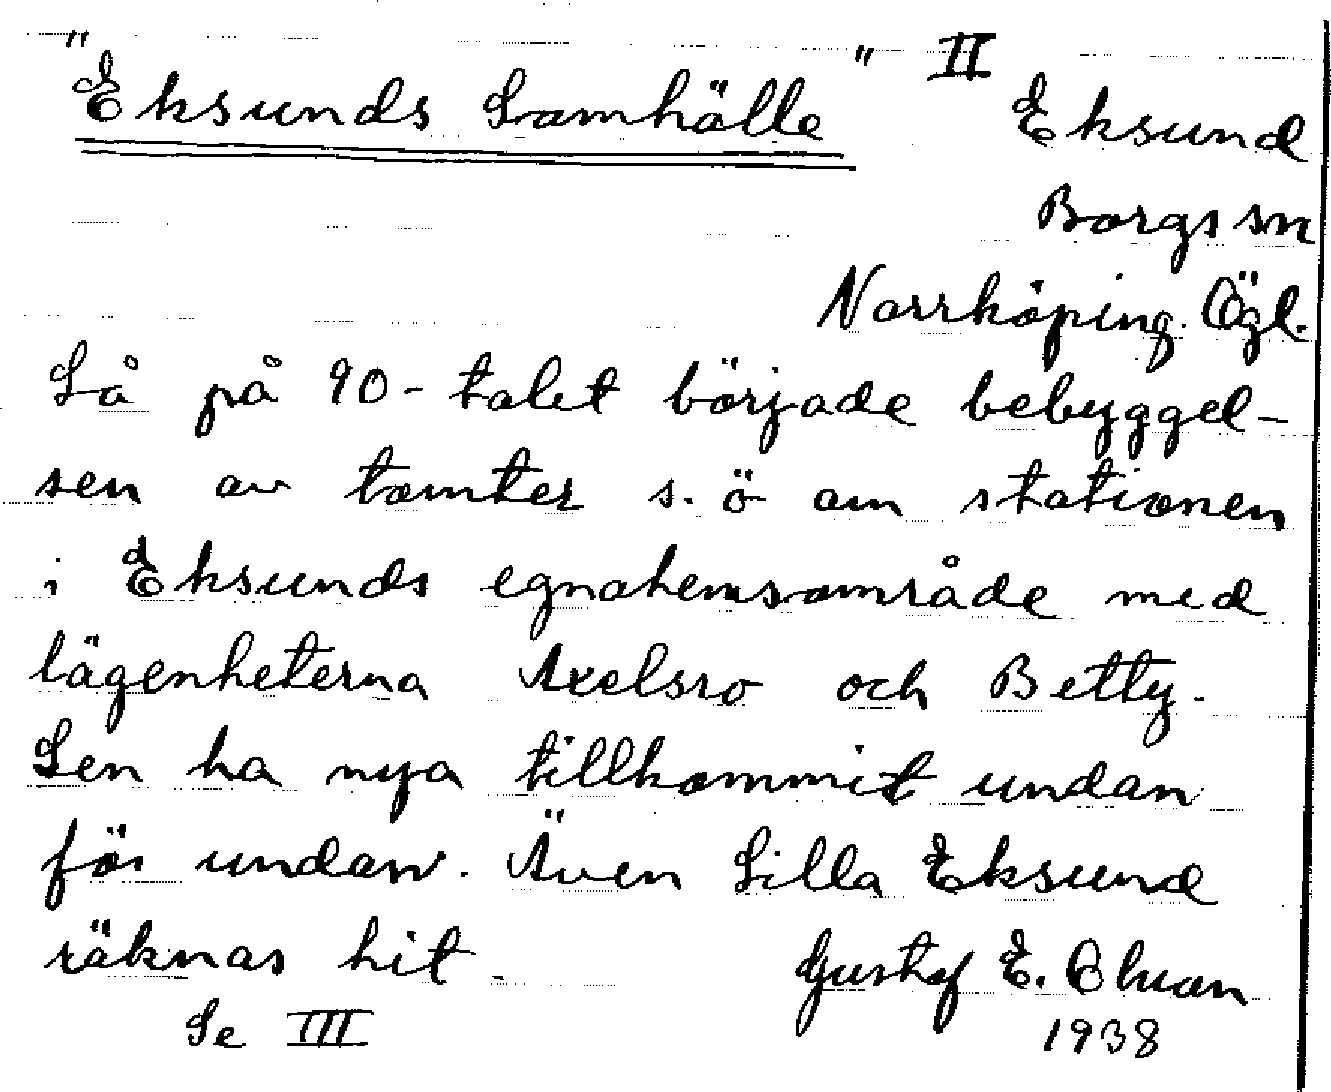 "Eksunds Samhälle" II
Eksund
Borgs sn
Norrköping. Ögl.
Så på 90-talet började bebyggel-
sen av tomter s. ö om stationen
i Eksunds egnahemsområde med
lägenheterna Axelsro och Betty.
Sen ha nya tillkommit undan
för undan. Även Lilla Eksund
räknas hit.
Gustaf E.
Se III
1938